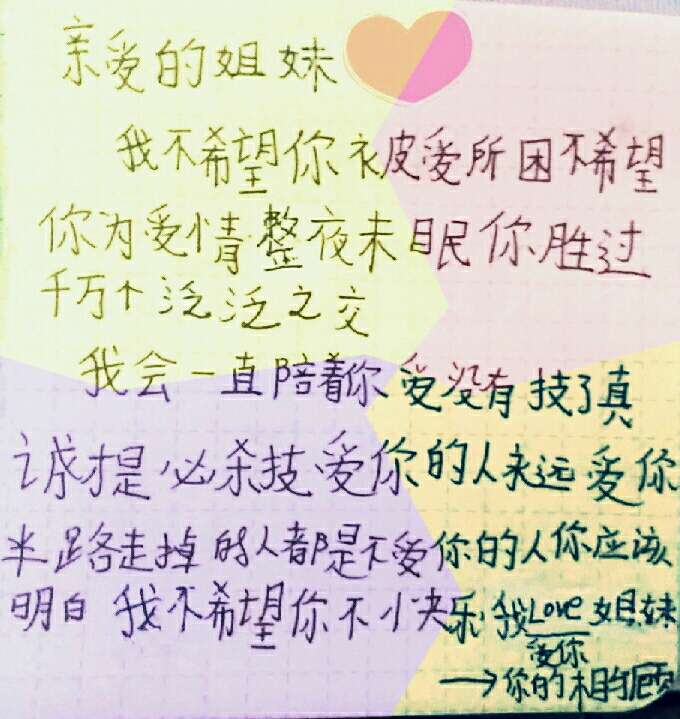 亲爱的姐妹
我不希望你被爱所困不希望
你为爱情整夜未眠你胜过
千万个泛泛之交
我会一直陪着你爱没有技了真
诚才是必杀技爱你的人永远爱你
半路走掉的人都是不爱你的人你应该
明白我不希望你不小快乐我Love姐妹
爱你
→你的相的